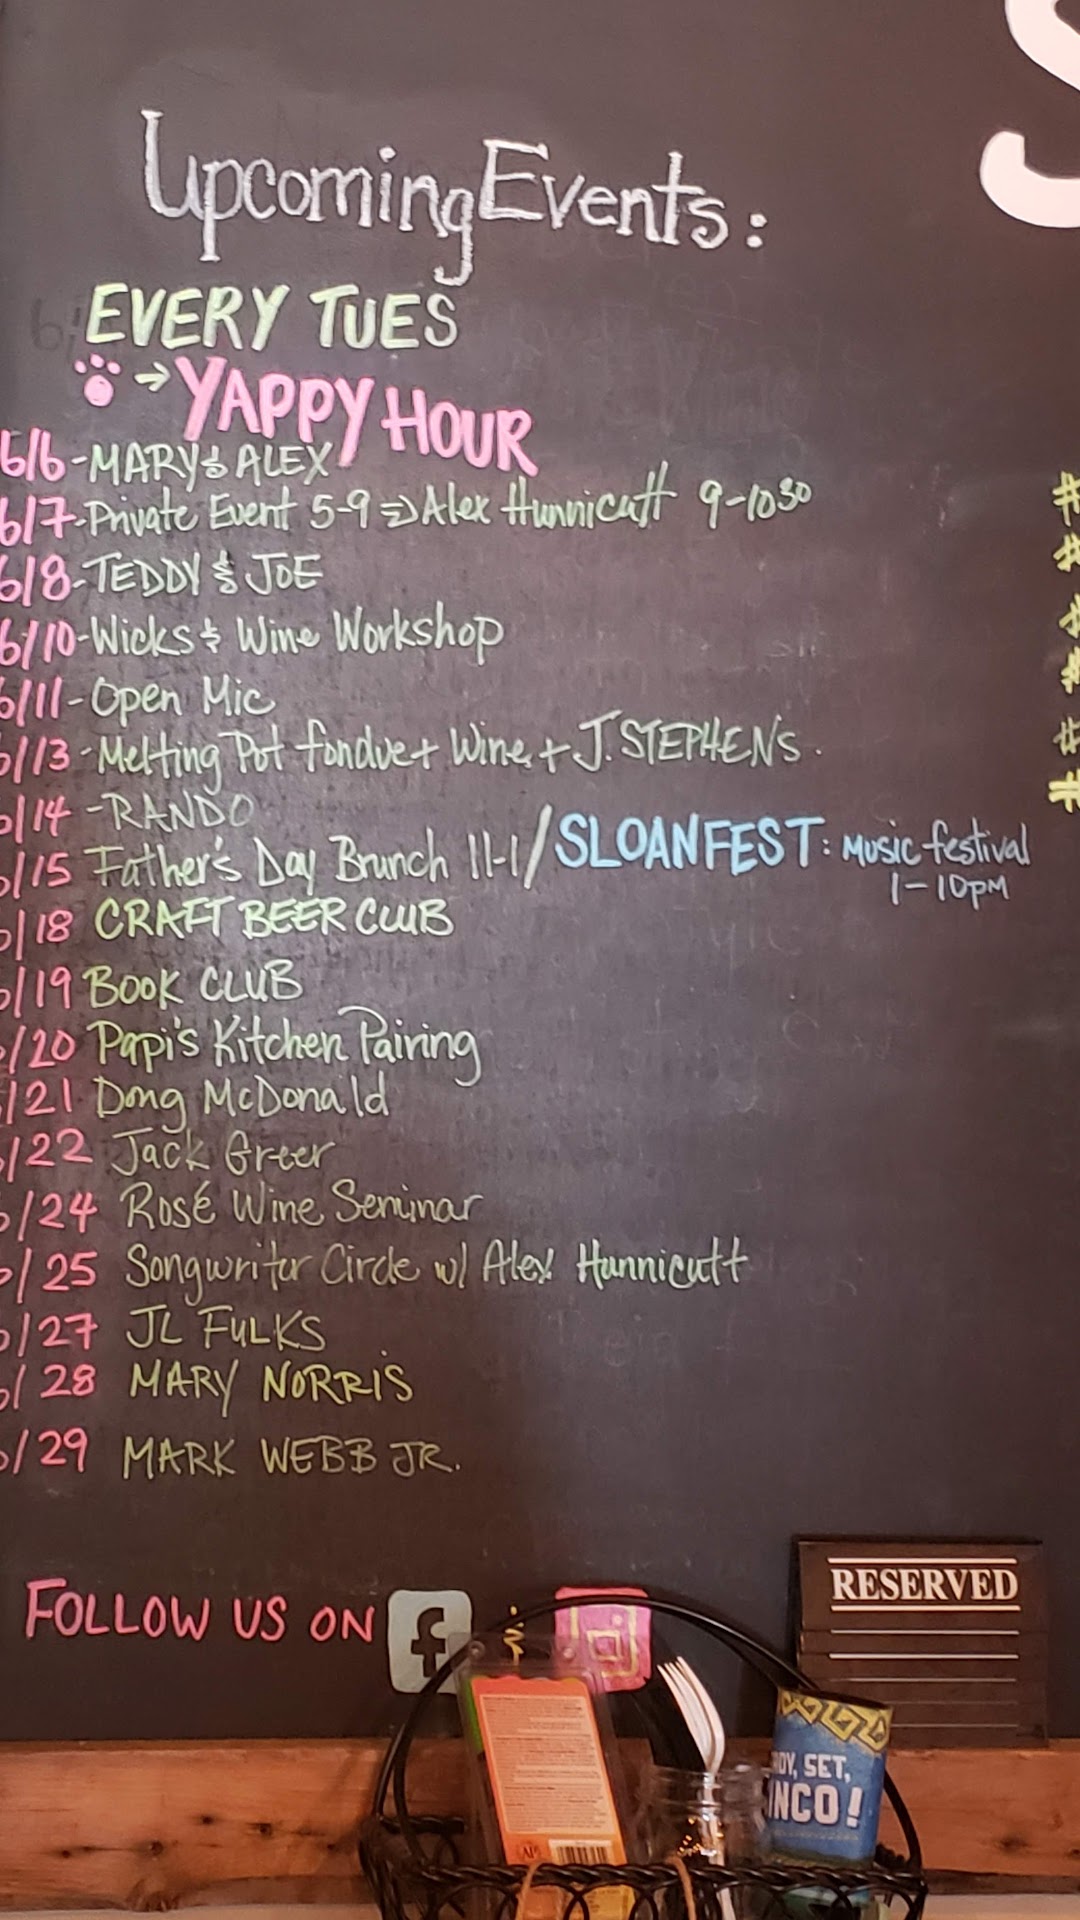 Upcoming Events:
EVERY TUES
→ YAPPY HOUR
6/6 - MARY & ALEX
6/7 - Private Event 5-9 => Alex Hunnicutt 9-1030
6/8 - TEDDY & JOE
6/10 - Wicks & Wine Workshop
6/11 - Open Mic
6/13 - Melting Pot fondue + Wine + J. STEPHENS.
6/14 - RANDO
6/15 Father's Day Brunch 11-1 / SLOANFEST: Music festival
1-10pm
6/18 CRAFT BEER CLUB
6/19 BOOK CLUB
6/20 Papi's Kitchen Pairing
/21 Doug McDonald
6/22 Jack Greer
6/24 Rosé Wine Seminar
6/25 Songwriter Circle w/ Alex Hunnicutt
6/27 JL FULKS
6/28 MARY NORRIS
6/29 MARK WEBB JR.
FOLLOW US ON f &
RESERVED
SET,